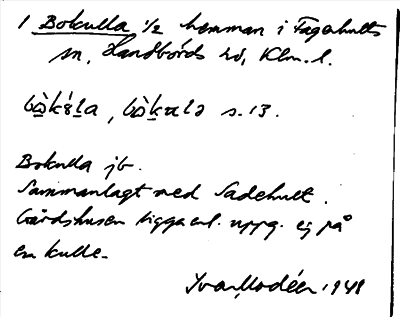 1 Bokulla 1/2 hemman i Fagerhults
sn, Handbörds hd, Klm. l.
s. 13.
Bokulla jb.
Sammanlagt med Sadehult.
Gårdshusen ligga enl. uppg. ej på
en kulle.
Ivar Modéer 1941